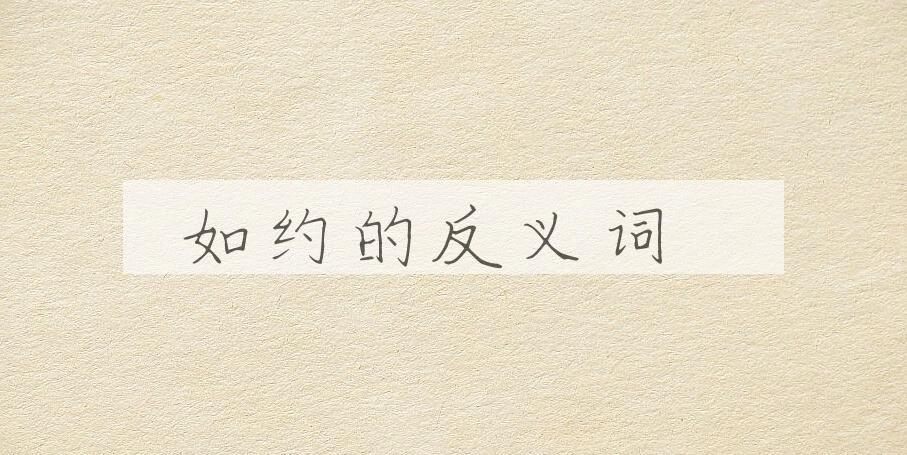 如约的反义词